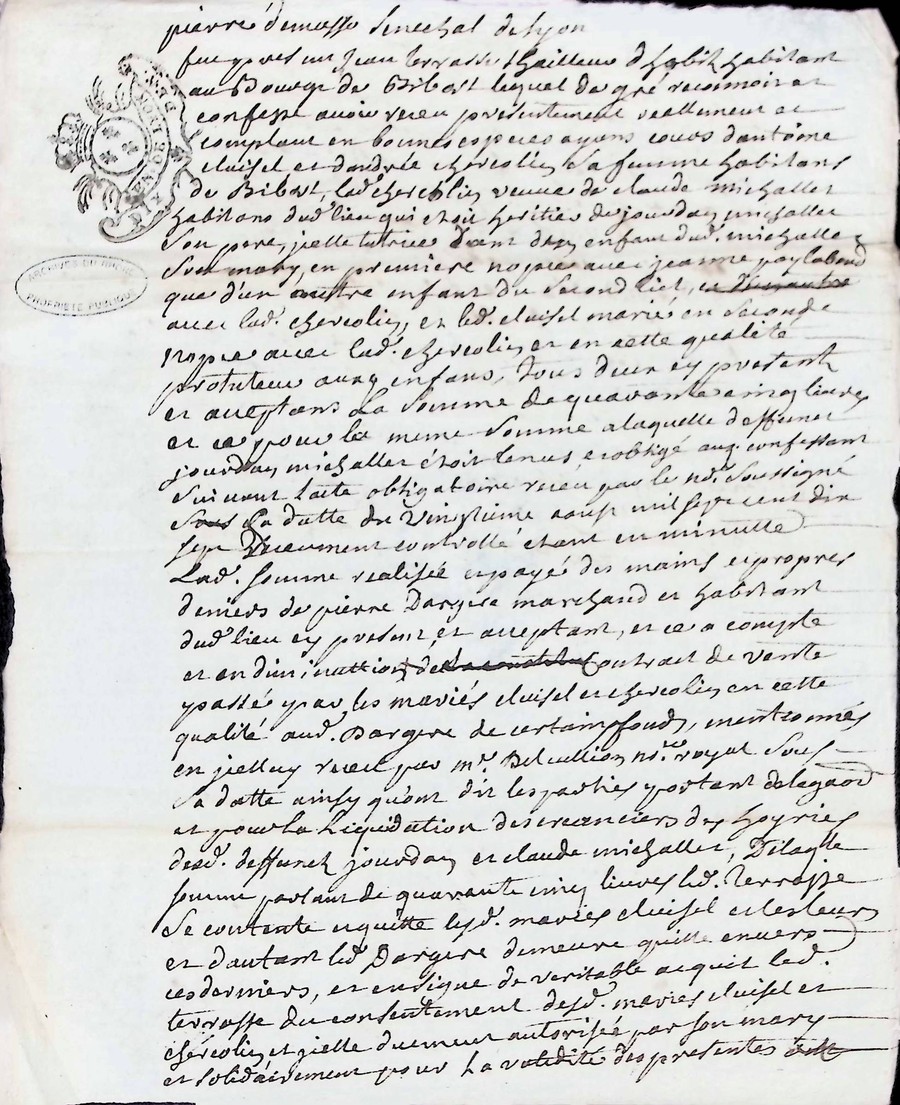 pierre demasso senechal de lyon
fut present jean terrasse thailleur d'habit habitant
au Bourg de Bibost lequel de gré reconnoit et
confesse avoir receu presentement reellement et
comptant en bonnes especes ayans cours d'antoine
cluisel et d'andrée chercolié sa femme habitans
de Bibost, lad. chercolié veuve de claude michallet
habitans dud. lieu qui etoit heritier de jourdan michallet
son pere, jcelle tutrice tant des enfant dud. michallet
son mary, en premiere nopce avec jeanne
que d'un autre enfant du second lict,
avec lad. chercolié, et led. cluisel marié en seconde
nopce avec lad. chercolié et en cette qualité
protuteur auxq enfans, tous deux ey present
et acceptans la somme de quarante cinq livres
et ce pour la meme somme a laquelle deffunct
jourdan michallet étoit tenus, et obligé aux confessant
suivant l'acte obligatoire receu par le nore. soussigné
sous la datte du vingtieme aoust mil sept cent dix
sept deuement controllé étant en minutte
Lad. somme realisée et payé des mains et propres
deniers de pierre Dargere marchand et habitant
dud. lieu ey present, et acceptant, et ce a compte
et en diminuttion de contrat de vente
passée par les mariés cluisel et chercolié en cette
qualité aud. Dargere de certains fonds, mentionnés
en jcelluy receu par mr. nore. royal sous
sa datte ainsy qu'ont dit les parties portant delegaon
et pour la liquidation des creanciers des hoyries
desd. deffunct jourdan et claude michallet, Delaqlle
somme partant de quarante cinq livres led. terrasse
se contante et quitte lesd. mariés cluisel et les leurs
et d'autant led. Dargere demeure quitte envers
ces derniers, et en signe de veritable acquit led.
terrasse du consentement desd. mariés cluisel et
chercolié et jcelle duement autorisée par son mary
et solidairement pour la validité des presentes
ARCHIVES DU RHONE
PROPRIETE PUBLIQUE